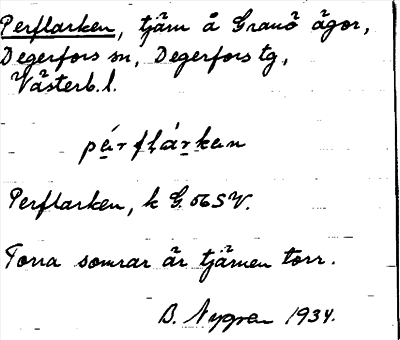 Perflarken, tjärn å Granö ägor,
Degerfors sn, Degerfors tg,
Västerb. l.
pérflárken
Perflarken, k G. 56 SV.
Torra somrar är tjärnen torr.
B. Nygren 1934.